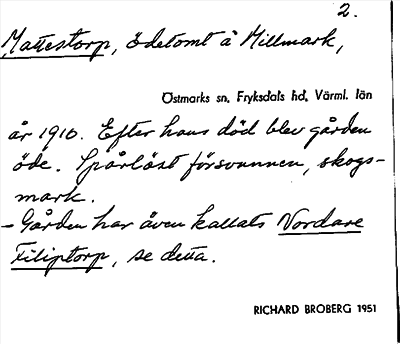 2.
Mattestorp, ödetomt å Hillmark,
Östmarks sn, Fryksdals hd, Värml. län
år 1910. Efter hans död blev gården
öde. Spårlöst försvunnen, skogs-
mark.
- Gården har även kallats Nordare
Filiptorp, se detta.
RICHARD BROBERG 1951